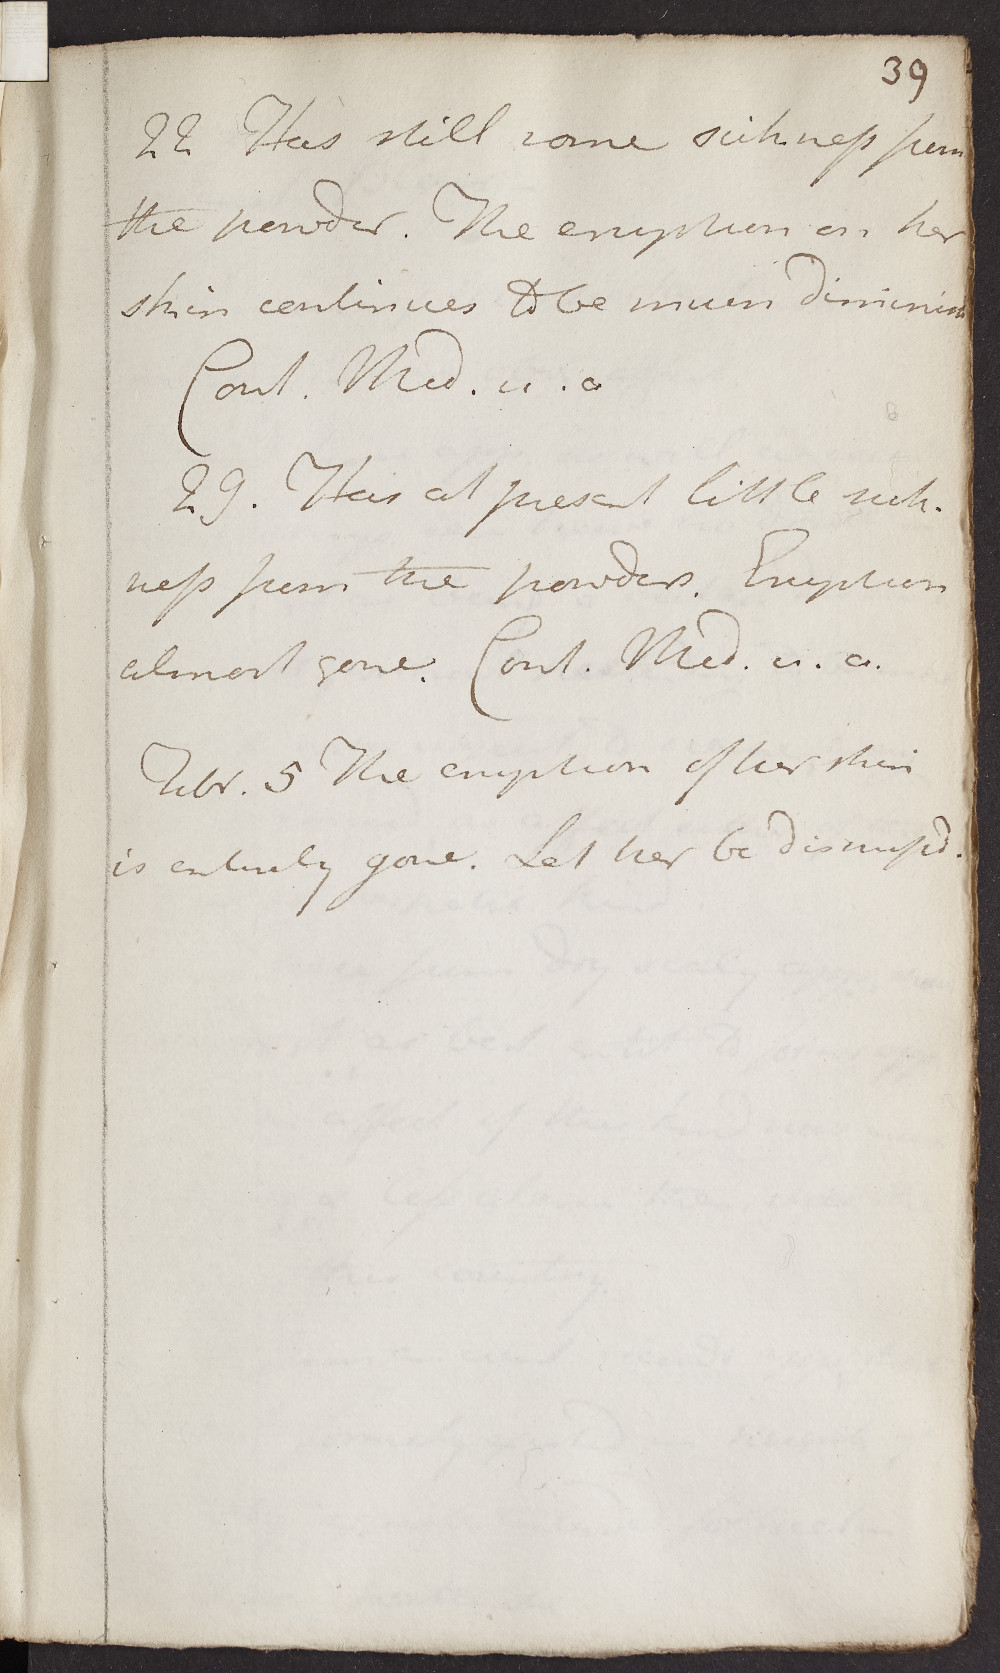 39
22 Has still some sickness from
the powder. The eruption on her
skin continues to be much diminish
Cont. Med. u. a
29. Has at present little sick-
ness from the powders. Eruption
almost gone. Cont. Med. u. a.
Febr. 5 The eruption of her skin
is entirely gone. Let her be dismissd.